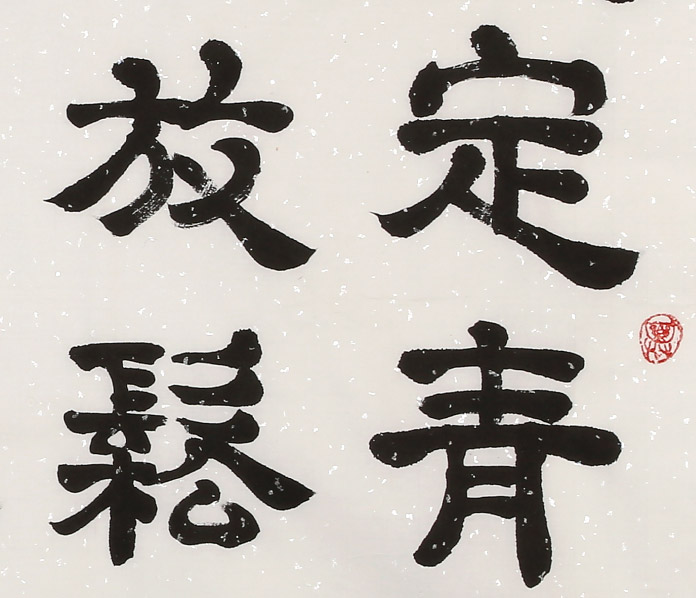 定青
放鬆